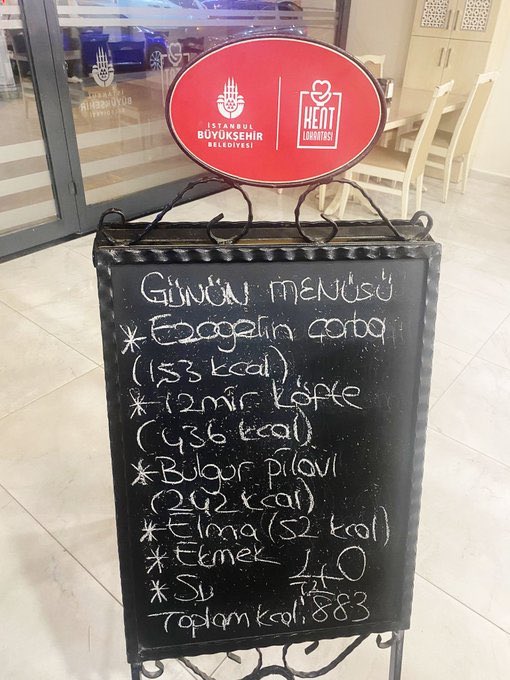 İSTANBUL
BÜYÜKŞEHİR
BELEDİYESİ
KENT
LOKANTASI
GÜNÜN MENÜSÜ
* Ezogelin çorba
(153 kcal)
* İzmir köfte
(436 kcal)
* Bulgur pilavı
(242 kcal)
* Elma (52 kcal)
* Ekmek
* Su
40
TL
Toplam kcal: 883
İSTANBUL
BÜYÜKŞEHİR
BELEDİYESİ